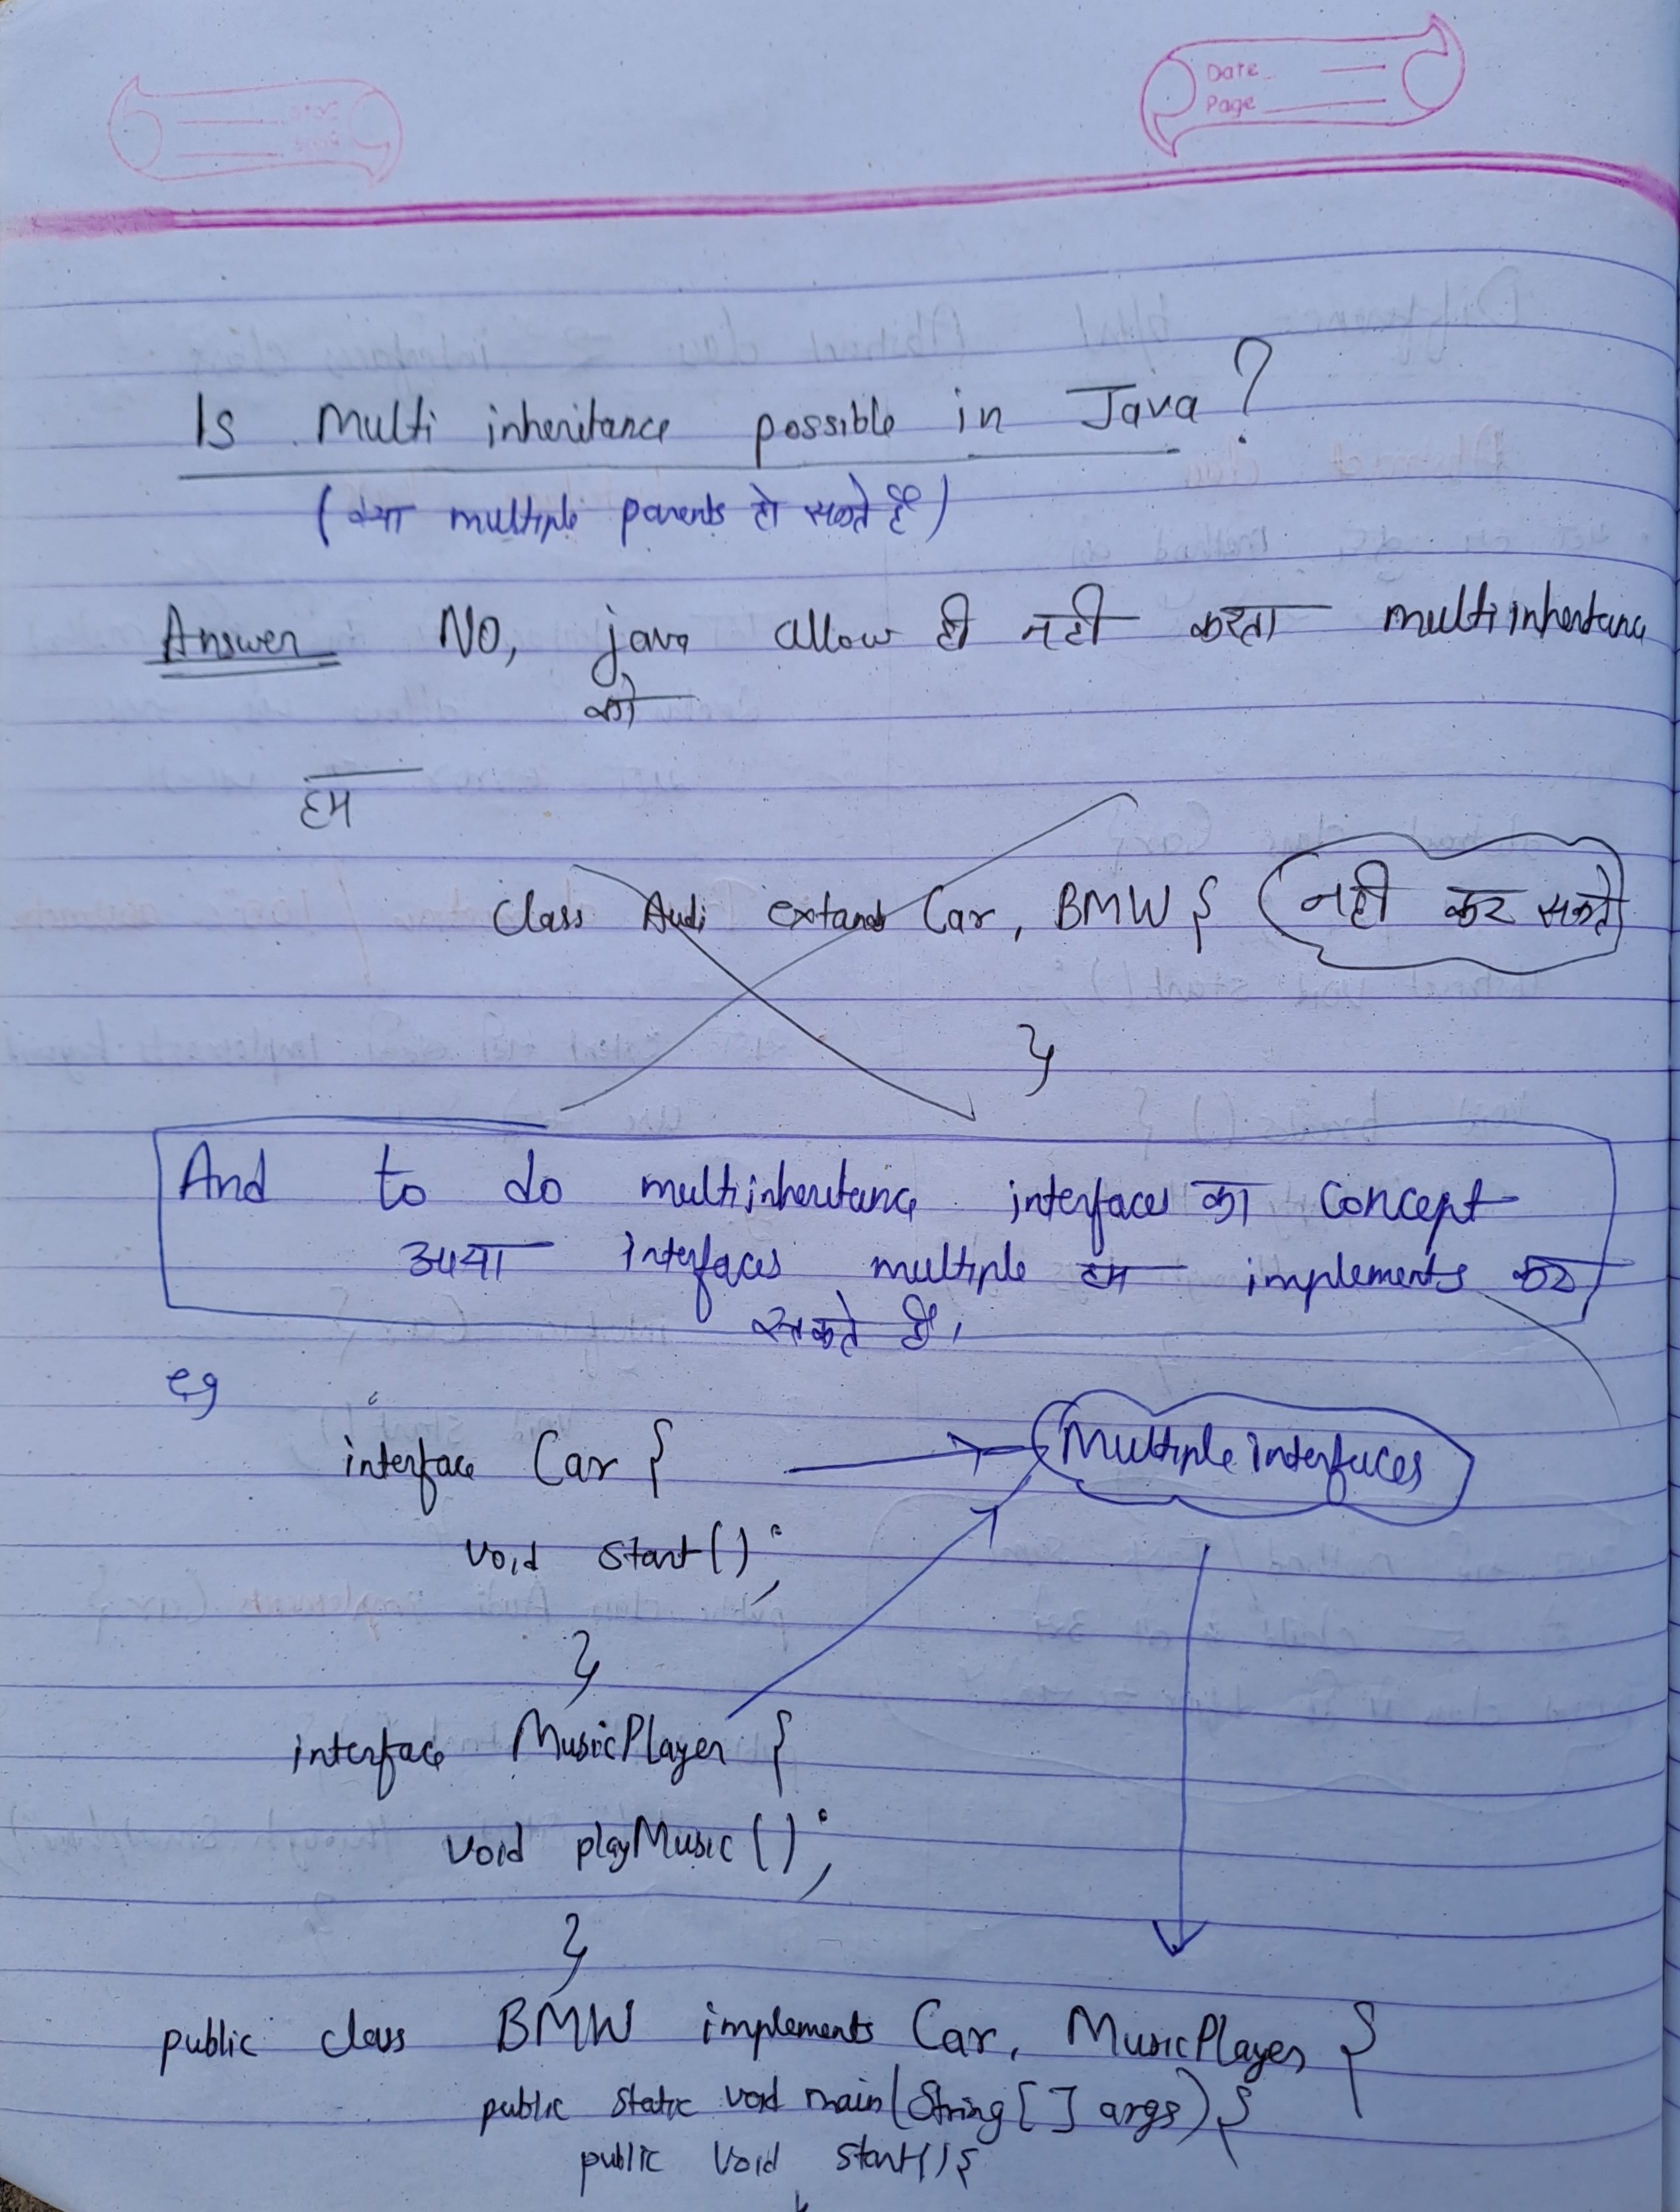 Date
Page
Is Multi inheritance possible in Java?
(क्या multiple parents हो सकते हैं)
Answer NO, java allow ही नही करता multiinheritance
को
हम
class Audi extands Car, BMW { नही कर सकते
}
And to do multiinheritance interfaces का concept
आया interfaces multiple हम implements कर
सकते हैं।
eg
interface Car { Multiple interfaces
void start();
}
interface MusicPlayer {
void playMusic();
}
public class BMW implements Car, MusicPlayer {
public static void main(String[] args){
public void start(){